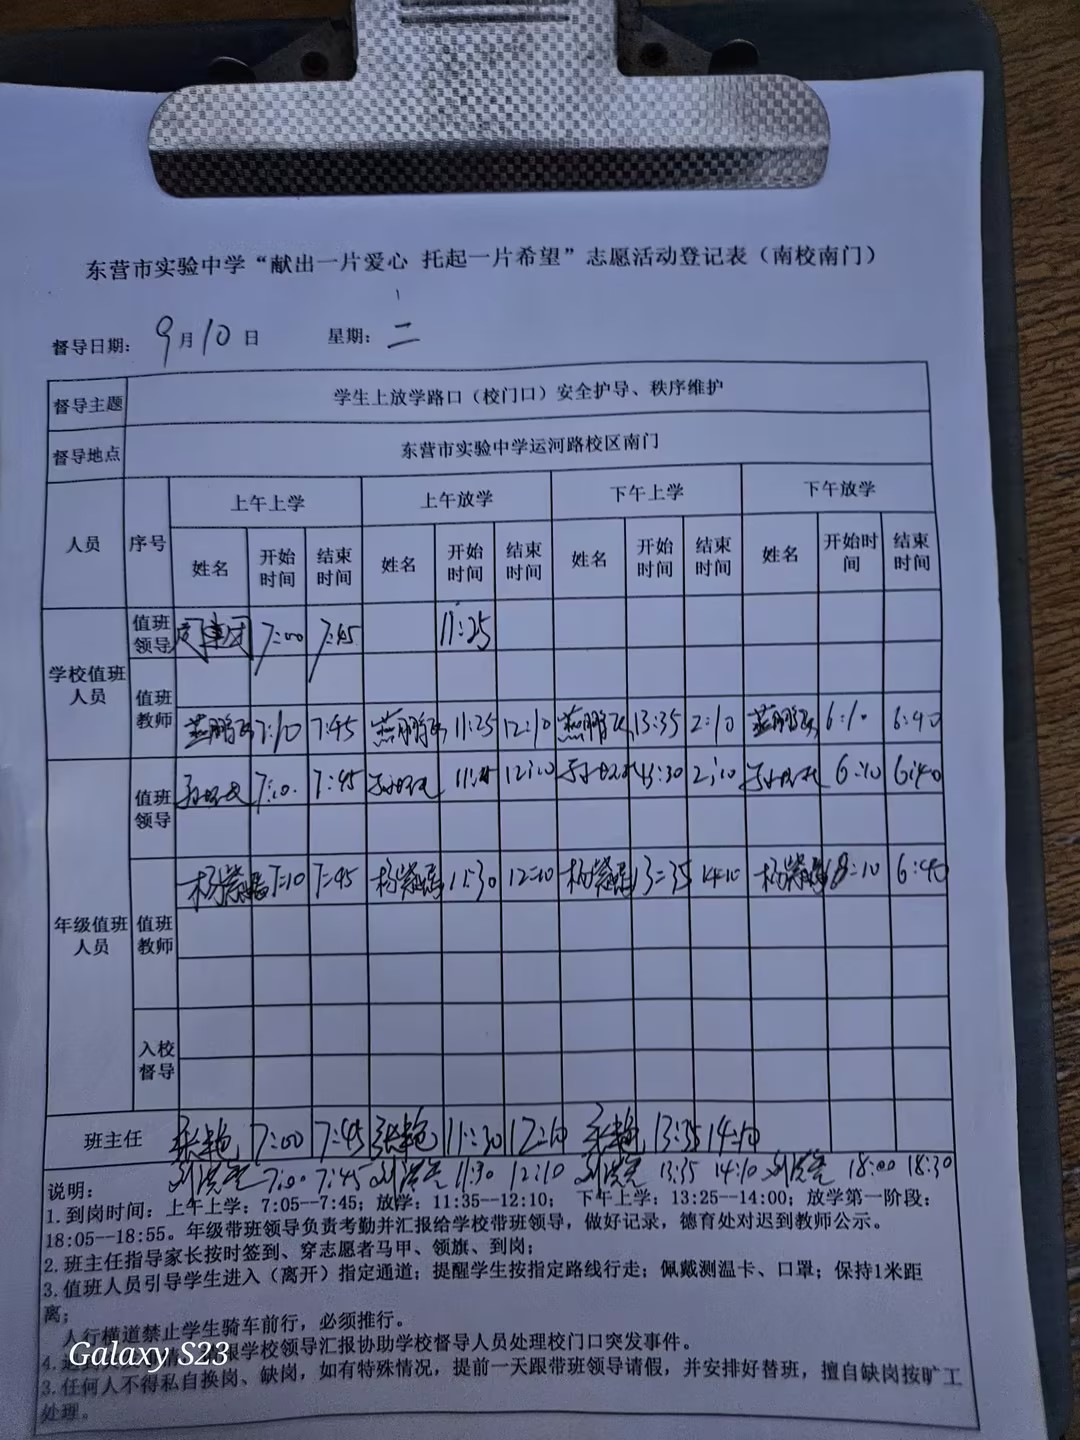 东营市实验中学“献出一片爱心 托起一片希望”志愿活动登记表（南校南门）
督导日期： 9月10日 星期： 二
督导主题 学生上放学路口（校门口）安全护导、秩序维护
督导地点 东营市实验中学运河路校区南门
人员 序号 上午上学 上午放学 下午上学 下午放学
姓名 开始时间 结束时间 姓名 开始时间 结束时间 姓名 开始时间 结束时间 姓名 开始时间 结束时间
学校值班人员 值班领导 7:00 7:45 11:25
值班教师 燕鹏 7:10 7:45 燕鹏 11:25 12:10 燕鹏 13:35 2:10 燕鹏 6:10 6:40
年级值班人员 值班领导 7:10 7:45 12:10 13:30 2:10 6:10 6:40
值班教师 杨 7:10 7:45 杨 11:30 12:10 杨 13:35 14:10 杨 6:40
入校督导
班主任 张艳 7:00 7:45 张艳 11:30 12:10 张艳 13:35 14:10
刘 7:00 7:45 刘 11:30 12:10 刘 13:35 14:10 刘 18:00 18:30
说明：
1.到岗时间：上午上学：7:05--7:45；放学：11:35--12:10； 下午上学：13:25--14:00；放学第一阶段：
18:05--18:55。年级带班领导负责考勤并汇报给学校带班领导，做好记录，德育处对迟到教师公示。
2.班主任指导家长按时签到、穿志愿者马甲、领旗、到岗；
3.值班人员引导学生进入（离开）指定通道；提醒学生按指定路线行走；佩戴测温卡、口罩；保持1米距
离；
人行横道禁止学生骑车前行，必须推行。
4. 学校领导汇报协助学校督导人员处理校门口突发事件。
3.任何人不得私自换岗、缺岗，如有特殊情况，提前一天跟带班领导请假，并安排好替班，擅自缺岗按旷工
处理。
Galaxy S23